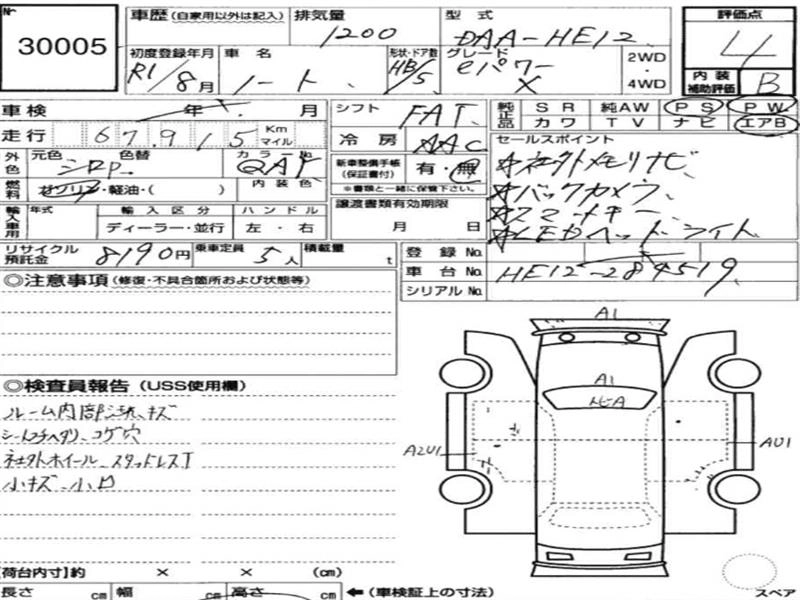 № 30005
車歴 (自家用以外は記入) 排気量 1200 型式 DAA-HE12 評価点 4
初度登録年月 R1/8月 車名 ノート 形状・ドア数 HB/5 グレード eパワー X 2WD・4WD 内装補助評価 B
車検 年 月 シフト FAT 純正品 SR 純AW PS PW
カワ TV ナビ エアB
走行 67,915 Km マイル 冷房 AAC セールスポイント
外色 元色 シロP 色替 カラーNo. QAB 新車整備手帳(保証書付) 有・無 社外メモリナビ
※書類と一緒に保管下さい。
燃料 ガソリン・軽油・( ) 内装色 バックカメラ
輸入車用 年式 輸入区分 ハンドル 譲渡書類有効期限 スマートキー
ディーラー・並行 左・右 月 日 LEDヘッドライト
リサイクル預託金 8190円 乗車定員 5人 積載量 t 登録No.
車台No. HE12-284519
シリアルNo.
◎注意事項 (修復・不具合箇所および状態等)
A1
◎検査員報告 (USS使用欄)
A1
トビA
ルーム内部汚れ、キズ
シートコゲ穴
A2U1 AU1
社外ホイール、スタッドレスT
小キズ、小凹
【荷台内寸】約 × × (cm)
長さ cm 幅 cm 高さ cm ←(車検証上の寸法)
スペア